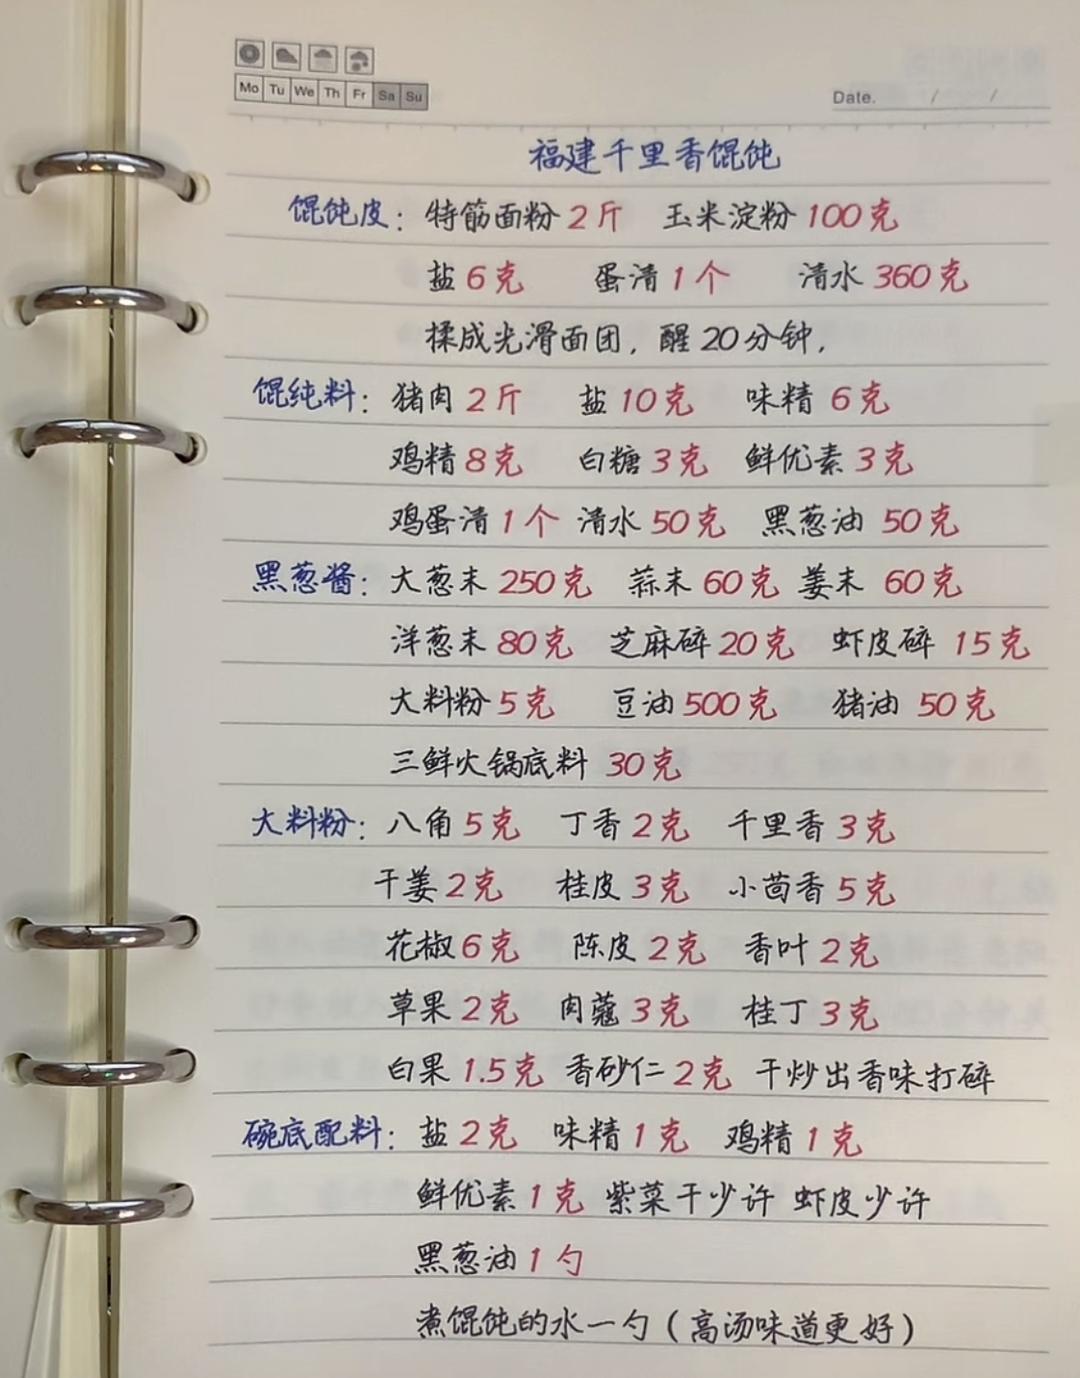 Mo Tu We Th Fr Sa Su
Date. / /
福建千里香馄饨
馄饨皮：特筋面粉2斤 玉米淀粉100克
盐6克 蛋清1个 清水360克
揉成光滑面团，醒20分钟，
馄纯料：猪肉2斤 盐10克 味精6克
鸡精8克 白糖3克 鲜优素3克
鸡蛋清1个 清水50克 黑葱油50克
黑葱酱：大葱末250克 蒜末60克 姜末60克
洋葱末80克 芝麻碎20克 虾皮碎15克
大料粉5克 豆油500克 猪油50克
三鲜火锅底料30克
大料粉：八角5克 丁香2克 千里香3克
干姜2克 桂皮3克 小茴香5克
花椒6克 陈皮2克 香叶2克
草果2克 肉蔻3克 桂丁3克
白果1.5克 香砂仁2克 干炒出香味打碎
碗底配料：盐2克 味精1克 鸡精1克
鲜优素1克 紫菜干少许 虾皮少许
黑葱油1勺
煮馄饨的水一勺（高汤味道更好）